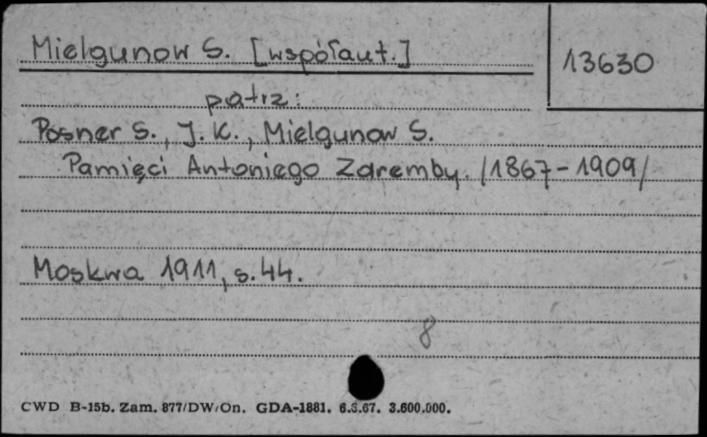 Mielgunow S. [współaut.]
13630
patrz:
Posner S., J. K., Mielgunow S.
Pamięci Antoniego Zaremby. /1867-1909/
Moskwa 1911, s. 44.
8
CWD B-15b. Zam. 877/DW/On. GDA-1881. 6.3.67. 3.600.000.